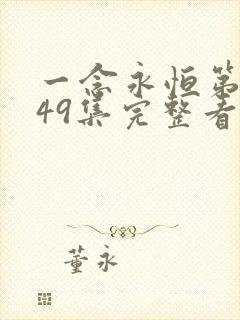 一念永恒第
49集完整看
董永